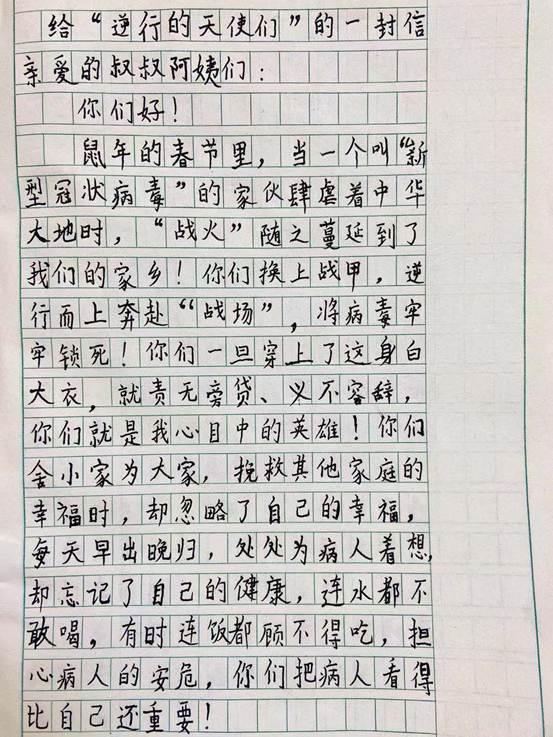 给“逆行的天使们”的一封信
亲爱的叔叔阿姨们：
你们好！
鼠年的春节里，当一个叫“新
型冠状病毒”的家伙肆虐着中华
大地时，“战火”随之蔓延到了
我们的家乡！你们换上战甲，逆
行而上奔赴“战场”，将病毒牢
牢锁死！你们一旦穿上了这身白
大衣，就责无旁贷、义不容辞，
你们就是我心目中的英雄！你们
舍小家为大家，挽救其他家庭的
幸福时，却忽略了自己的幸福，
每天早出晚归，处处为病人着想，
却忘记了自己的健康，连水都不
敢喝，有时连饭都顾不得吃，担
心病人的安危，你们把病人看得
比自己还重要！